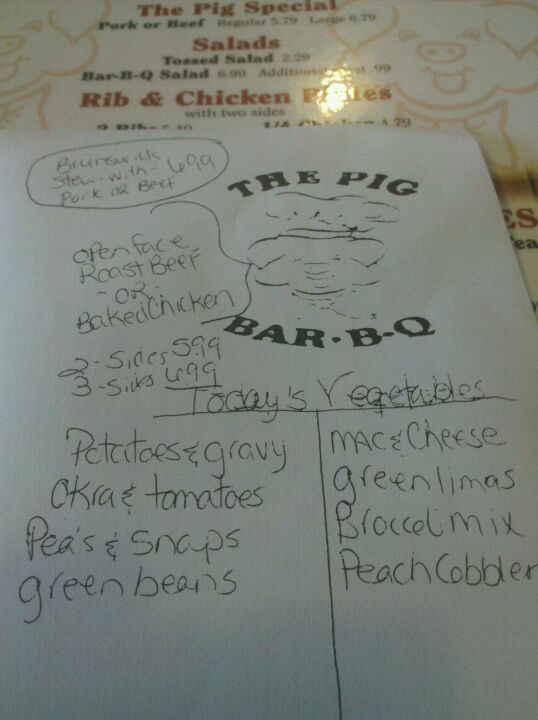 The Pig Special
Pork or Beef Regular 5.79 Large 6.79
Salads
Tossed Salad 2.29
Bar-B-Q Salad 6.99 Additional .99
Rib & Chicken
with two sides
2 Ribs
1/4 Chicken 4.79
Brunswick
Stew-with- 6.99
Pork or Beef
THE PIG
BAR·B-Q
Open Face
Roast Beef
-OR-
Baked Chicken
2-Sides 5.99
3-Sides 6.99
Today's Vegetables
Potatoes & gravy
Okra & tomatoes
Pea's & Snaps
green beans
MAC & Cheese
green limas
Broccoli mix
Peach Cobbler
ES